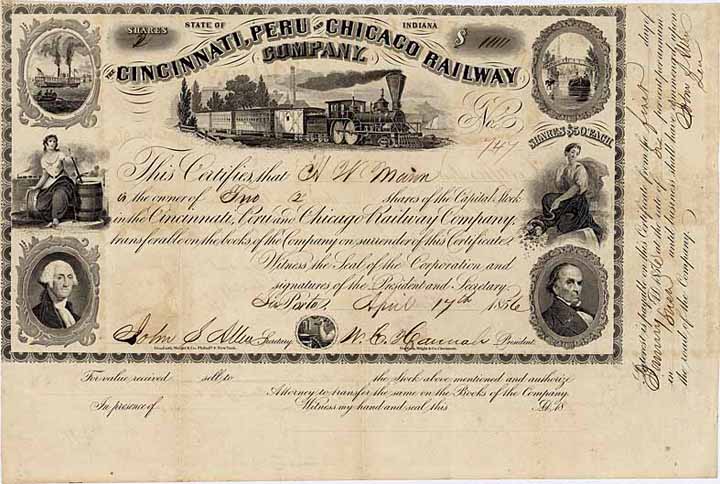 SHARES
2
STATE OF INDIANA
$ 100
THE CINCINNATI, PERU AND CHICAGO RAILWAY
COMPANY.
No
747
SHARES $50 EACH.
This Certifies, that H W Mann
is the owner of Two 2 shares of the Capital Stock
in the Cincinnati, Peru and Chicago Railway Company,
transferable on the books of the Company on surrender of this Certificate.
Witness the Seal of the Corporation, and
signatures of the President and Secretary.
La Porte, April 17th 1856
John S. Allen Secretary. W. C. Hannah President.
For value received sell to the Stock above mentioned and authorize
Attorney to transfer the same on the Books of the Company.
In presence of Witness my hand and seal, this A.D. 18
Interest is payable on this Certificate from the first day of
January A.D. 1856 at the rate of Six percent per annum
in until business shall have commenced on
the road of the Company. John S Allen
Sec